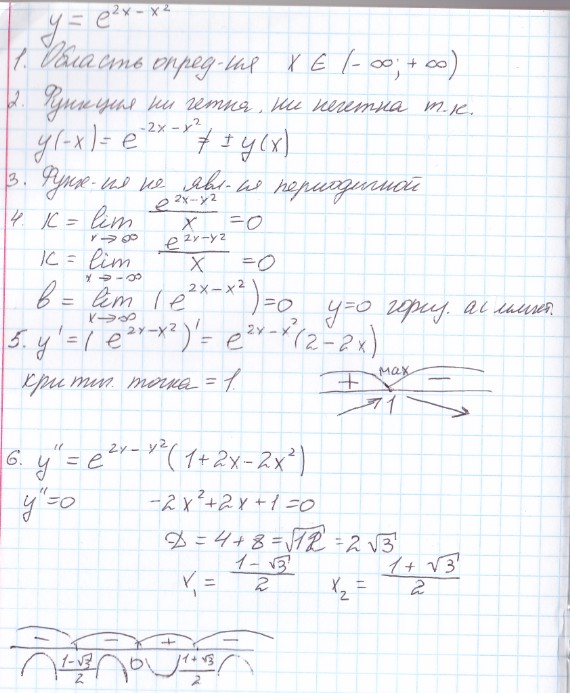 y = e^{2x - x^2}
1. Область опред-ия x ∈ (-∞; +∞)
2. Функция ни четна, ни нечетна т.к.
y(-x) = e^{-2x - x^2} ≠ ± y(x)
3. Функ-ия не явл-ия периодичной
4. K = lim_{x→∞} e^{2x-x^2}/x = 0
K = lim_{x→-∞} e^{2x-x^2}/x = 0
b = lim_{x→∞} (e^{2x-x^2}) = 0 y=0 гориз. асимпт.
5. y' = (e^{2x-x^2})' = e^{2x-x^2}(2-2x)
крит. точка = 1.
+ max −
1
6. y'' = e^{2x-x^2}(1+2x-2x^2)
y''=0 -2x^2+2x+1=0
D = 4+8 = √12 = 2√3
x_1 = (1-√3)/2 x_2 = (1+√3)/2
− − + −
(1-√3)/2 0 (1+√3)/2